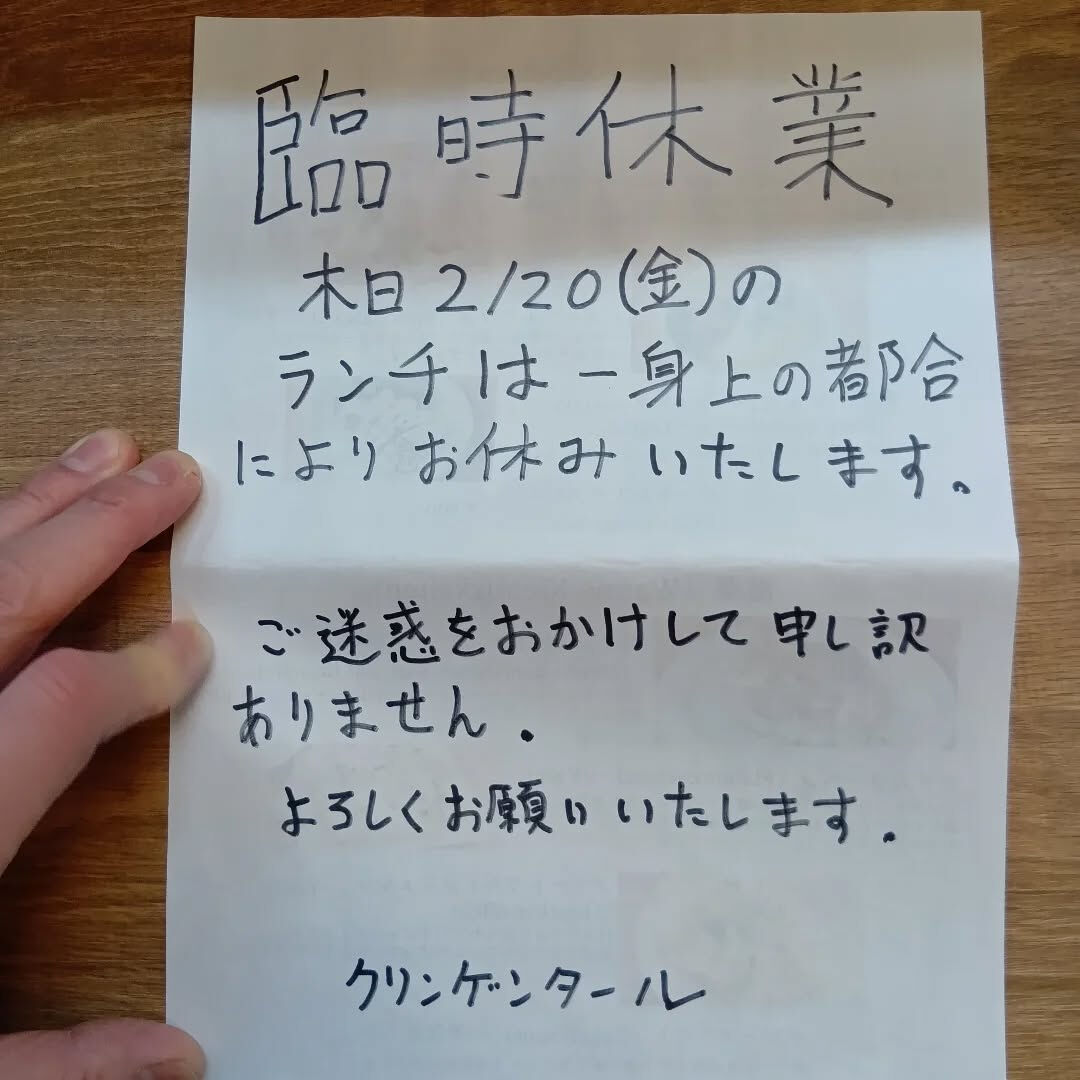 臨時休業
木日2/20(金)の
ランチは一身上の都合
によりお休みいたします。
ご迷惑をおかけして申し訳
ありません.
よろしくお願いいたします.
クリンゲンタール